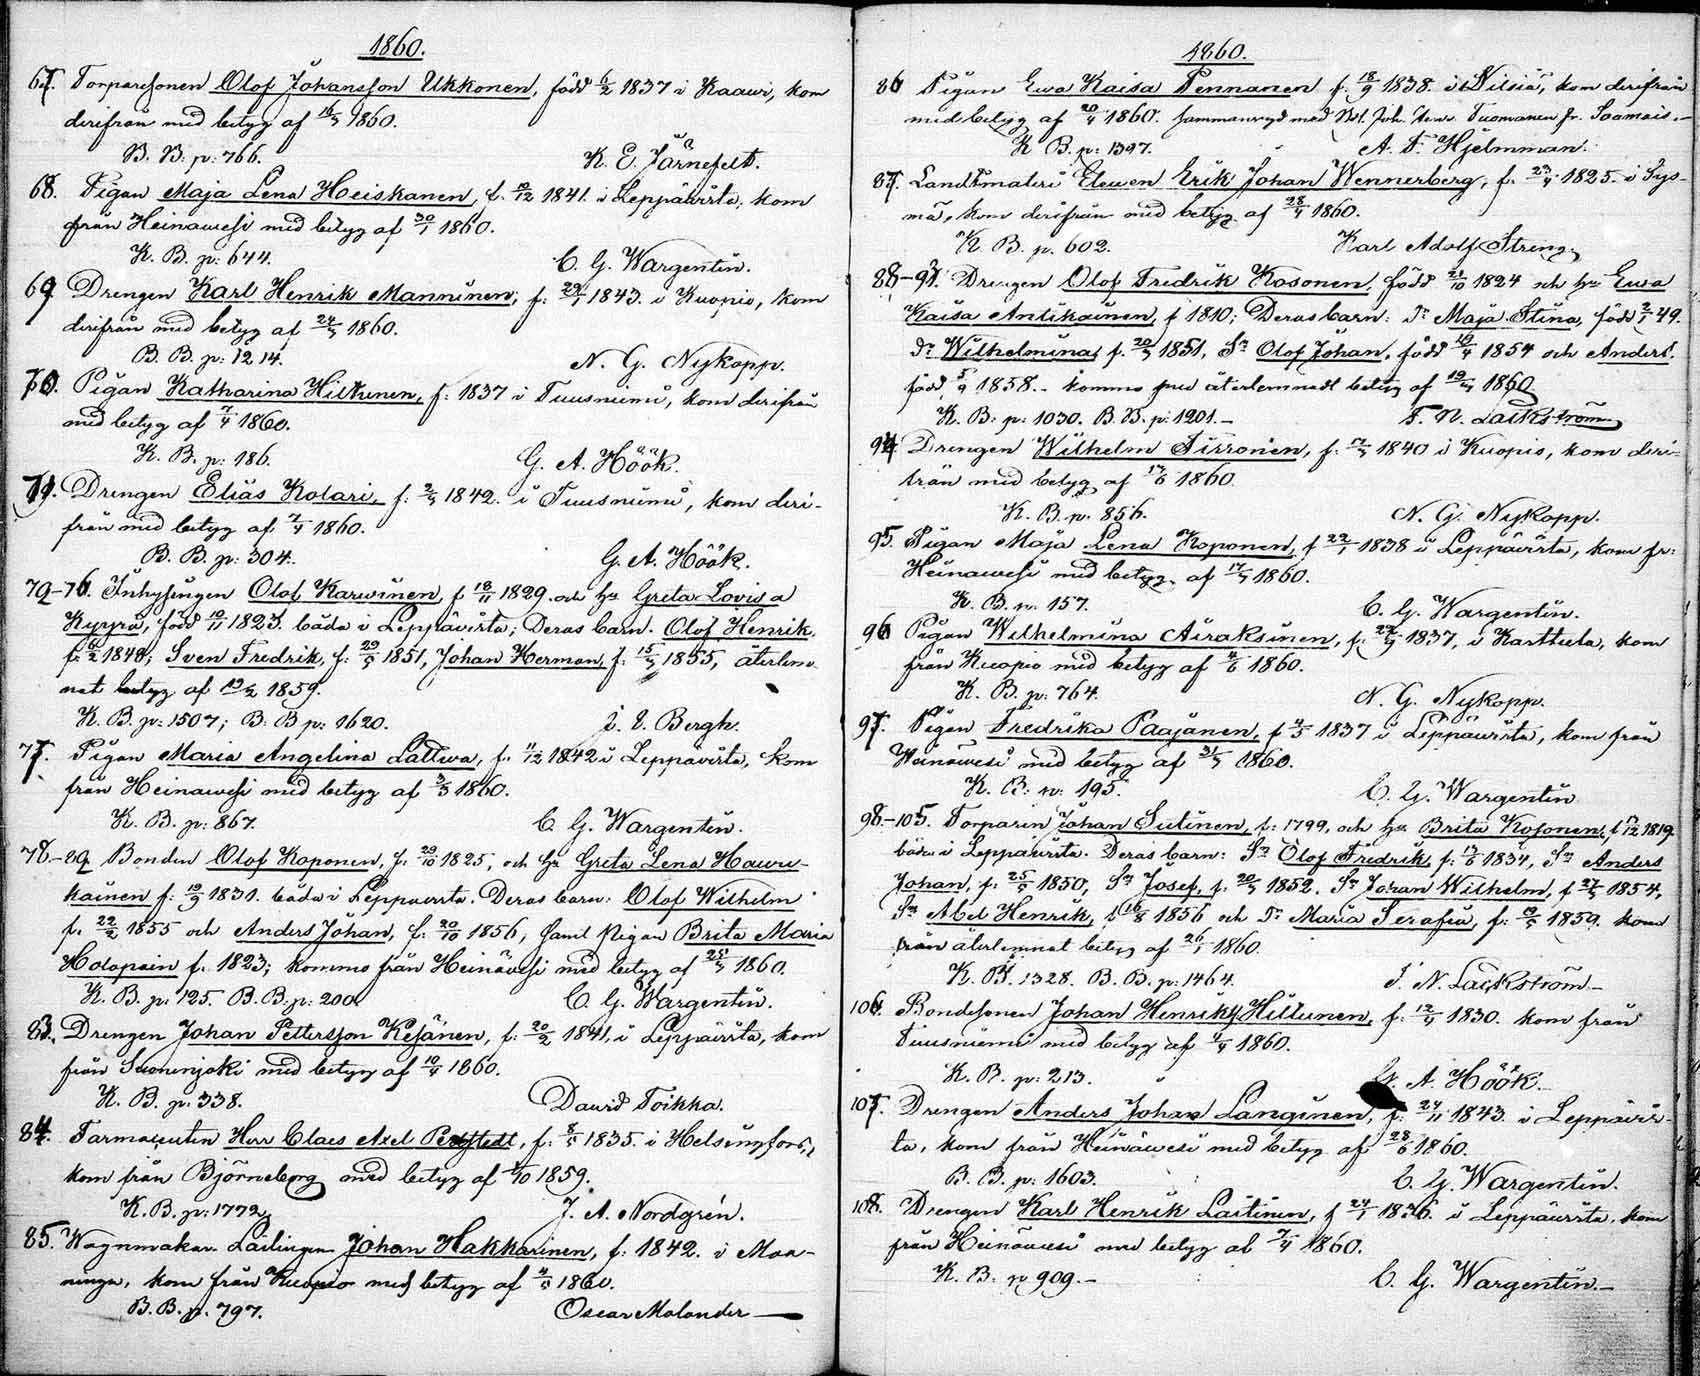 1860.
67. Torparesonen Olof Johansson Ukkonen, född 6/2 1837 i Kaawi, kom
derifrån med betyg af 16/3 1860.
B. B. p: 766. K. E. Järnefelt.
68. Pigan Maja Lena Heiskanen, f. 10/12 1841 i Leppävirta, kom
från Heinäwesi med betyg af 30/1 1860.
K. B. p: 644. C. G. Wargentin.
69 Drengen Karl Henrik Manninen, f: 1843 i Kuopio, kom
derifrån med betyg af 24/3 1860.
B. B. p: 1214. N. G. Nykopp.
70. Pigan Katharina Hiltunen, f: 1837 i Tuusniemi, kom derifrån
med betyg af 7/4 1860.
K. B. p: 186. G. A. Höök.
71. Drengen Elias Kolari, f: 2/3 1842. i Tuusniemi, kom deri-
från med betyg af 7/4 1860.
B. B. p: 304. G. A. Höök.
72-76. Inhysingen Olof Karwinen, f 18/11 1829. och Hu Greta Lovisa
Kyyrä, född 10/11 1823. båda i Leppävirta; Deras barn. Olof Henrik,
f: 1848; Sven Fredrik, f: 29/5 1851, Johan Herman, f: 15/3 1855, återlem-
nat betyg af 1859.
K. B. p: 1507; B. B p: 1620. Bergh.
77. Pigan Maria Angelina Lattwa, f. 11/12 1842 i Leppävirta, kom
från Heinäwesi med betyg af 3/3 1860.
K. B. p: 867. C. G. Wargentin.
78.-82 Bonden Olof Koponen, f: 29/10 1825, och Hu Greta Lena Hawu-
kainen f: 19/9 1831. båda i Leppävirta. Deras barn: Olof Wilhelm
f. 22/2 1855 och Anders Johan, f: 20/10 1856, samt pigan Brita Maria
Holopain f. 1823; komma från Heinäwesi med betyg af 25/3 1860.
K. B. p: 125. B. B: p: 200. C. G. Wargentin.
83. Drengen Johan Pettersson Kejänen, f: 20/2 1841, i Leppävirta, kom
från Suonenjoki med betyg af 10/4 1860.
K. B. p: 338. David Toikka.
84. Farmaceuten Herr Claes Axel, f: 8/5 1835. i Helsingfors,
kom från Björneborg med betyg af 1859.
K. B. p: 1772. J. A. Nordgrén.
85. Wagnmakar Lärlingen Johan Hakkarinen, f: 1842. i Maa-
ninga, kom från Kuopio med betyg af 1860.
B. B. p. 797. Oscar Molander
1860.
86 Pigan Ewa Kaisa Pennanen f. 18/9 1838. i Nilsiä, kom derifrån
med betyg af 20/4 1860. Joh. Tuomanen fr. Saamais.
K B. p: 1397. A. F. Hjelmman.
87. Landtmäteri Eleven Erik Johan Wennerberg, f. 23/4 1825. i Sys-
mä, kom derifrån med betyg af 28/4 1860.
K. B. p. 602. Karl Adolf Streng.
88-93. Drengen Olof Fredrik Kosonen, född 21/10 1824 och Hu Ewa
Kaisa Antikainen, f 1810; Deras barn: Dr Maja Stina, född 2/1 49.
Dr Wilhelmina, f. 1851, Sn Olof Johan, född 10/4 1854 och Anders.
född 5/9 1858. - komma med återlemnadt betyg af 19/3 1860
K. B: p: 1030. B. B. p: 1201.- F. N. Lackström
94 Drengen Wilhelm Sirronen, f: 1840 i Kuopio, kom deri-
från med betyg af 17/6 1860.
K. B. p. 856. N. G. Nykopp.
95. Pigan Maja Lena Koponen, f 22/1 1838 i Leppävirta, kom fr:
Heinäwesi med betyg af 17/3 1860.
K. B. p. 157. C. G. Wargentin.
96 Pigan Wilhelmina Airaksinen, f: 1837, i Karttula, kom
från Kuopio med betyg af 4/6 1860.
K. B. p: 764. N. G. Nykopp.
97. Pigan Fredrika Paajanen, f 1837 i Leppävirta, kom från
Heinäwesi med betyg af 31/3 1860.
K. B: p: 195. C. G. Wargentin
98.-105. Torparen Johan Sutinen, f: 1799, och Hu Brita Kosonen, f 17/12 1819.
båda i Leppävirta. Deras barn: Sn Olof Fredrik, f: 1834, Sn Anders
Johan, f: 25/5 1850, Sn Josef, f. 1852. Sn Johan Wilhelm, f 1854,
Sn Abel Henrik, f 16/8 1856 och Dr Maria Serafia, f: 1859. kom
från återlemnat betyg af 26/1 1860.
K. B. 1328. B. B. p: 1464. F. N. Lackström-
106. Bondesonen Johan Henrik Hiltunen, f: 12/4 1830. kom från
Tuusniemi med betyg af 9/4 1860.
K. B. p: 213. G. A. Höök.
107. Drengen Anders Johan Langinen, f: 24/11 1843. i Leppävir-
ta, kom från Heinäwesi med betyg af 28/6 1860.
B. B. p: 1603. C. G. Wargentin.
108. Drengen Karl Henrik Laitinen, f 24/1 1836. i Leppävirta, kom
från Heinäwesi med betyg af 7/4 1860.
K. B. p 909.- C. G. Wargentin.-